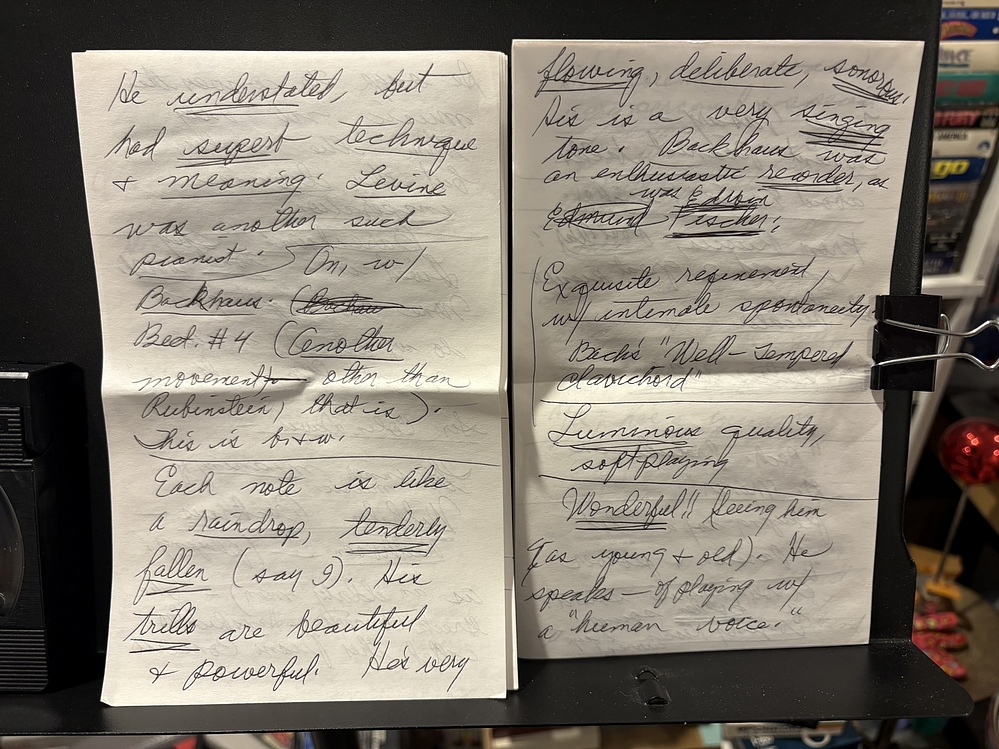 He understated, but
had superb technique
& meaning. Levine
was another such
pianist. On, w/
Backhaus.
Beet. #4 (another
movement other than
Rubinstein, that is).
This is b+w.
Each note is like
a raindrop, tenderly
fallen (say I). His
trills are beautiful
& powerful. He's very
flowing, deliberate, sonorous.
His is a very singing
tone. Backhaus was
an enthusiastic recorder, as
was Edwin
Edmund Fischer.
Exquisite refinement,
w/ intimate spontaneity.
Bach's "Well-Tempered
Clavichord"
Luminous quality,
soft playing
Wonderful!! Seeing him
(as young + old). He
speaks — of playing w/
a "human voice."
go